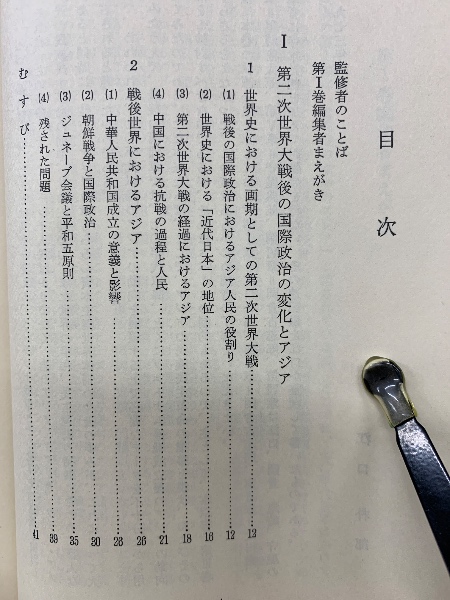 目次
監修者のことば
第Ⅰ巻編集者まえがき
Ⅰ 第二次世界大戦後の国際政治の変化とアジア
1 世界史における画期としての第二次世界大戦……13
(1) 戦後の国際政治におけるアジア人民の役割り……12
(2) 世界史における「近代日本」の地位……16
(3) 第二次世界大戦の経過におけるアジア……18
(4) 中国における抗戦の過程と人民……21
2 戦後世界におけるアジア……26
(1) 中華人民共和国成立の意義と影響……28
(2) 朝鮮戦争と国際政治……30
(3) ジュネーブ会議と平和五原則……35
(4) 残された問題……39
むすび……41